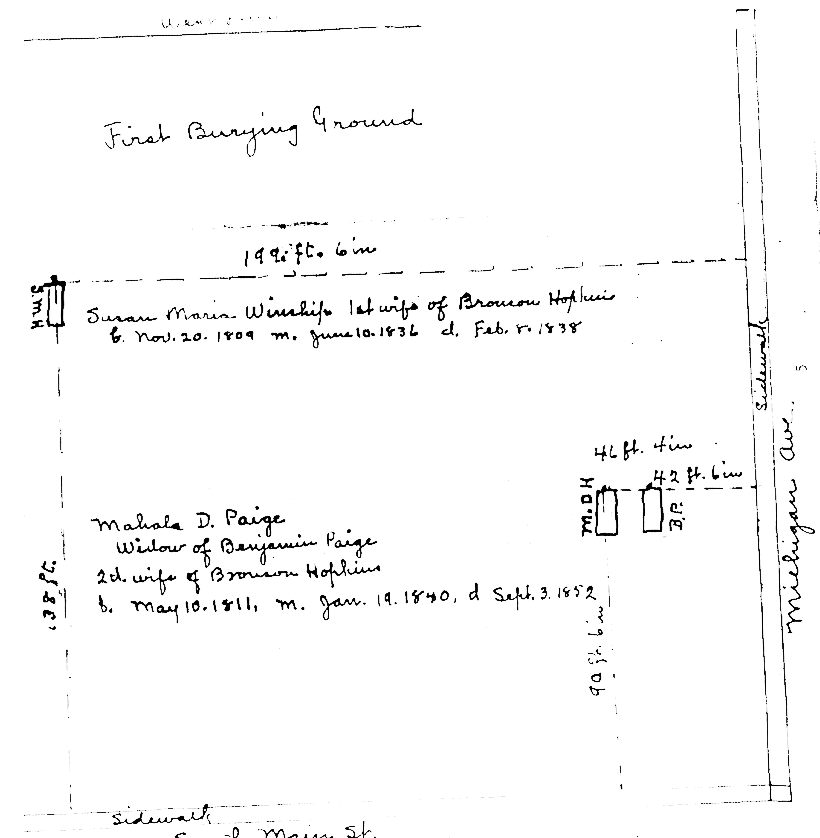 First Burying Ground
199 ft. 6 in
S.M.H
Susan Maria Winship 1st wife of Bronson Hopkins
b. Nov. 20. 1809 m. June 10. 1836 d. Feb. 8. 1838
Sidewalk
46 ft. 4 in
42 ft. 6 in
M.D.H
B.P.
Michigan Ave.
Mahala D. Paige
Widow of Benjamin Paige
2d. wife of Bronson Hopkins
b. May 10. 1811, m. Jan. 19. 1840, d Sept. 3. 1852
138 ft.
90 ft. 6 in
Sidewalk
Main St.